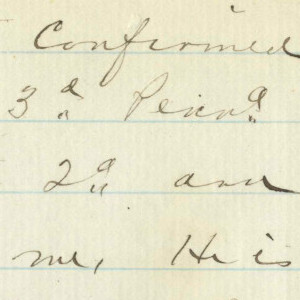 Confirmed
3d Penna
2d and
me, He is